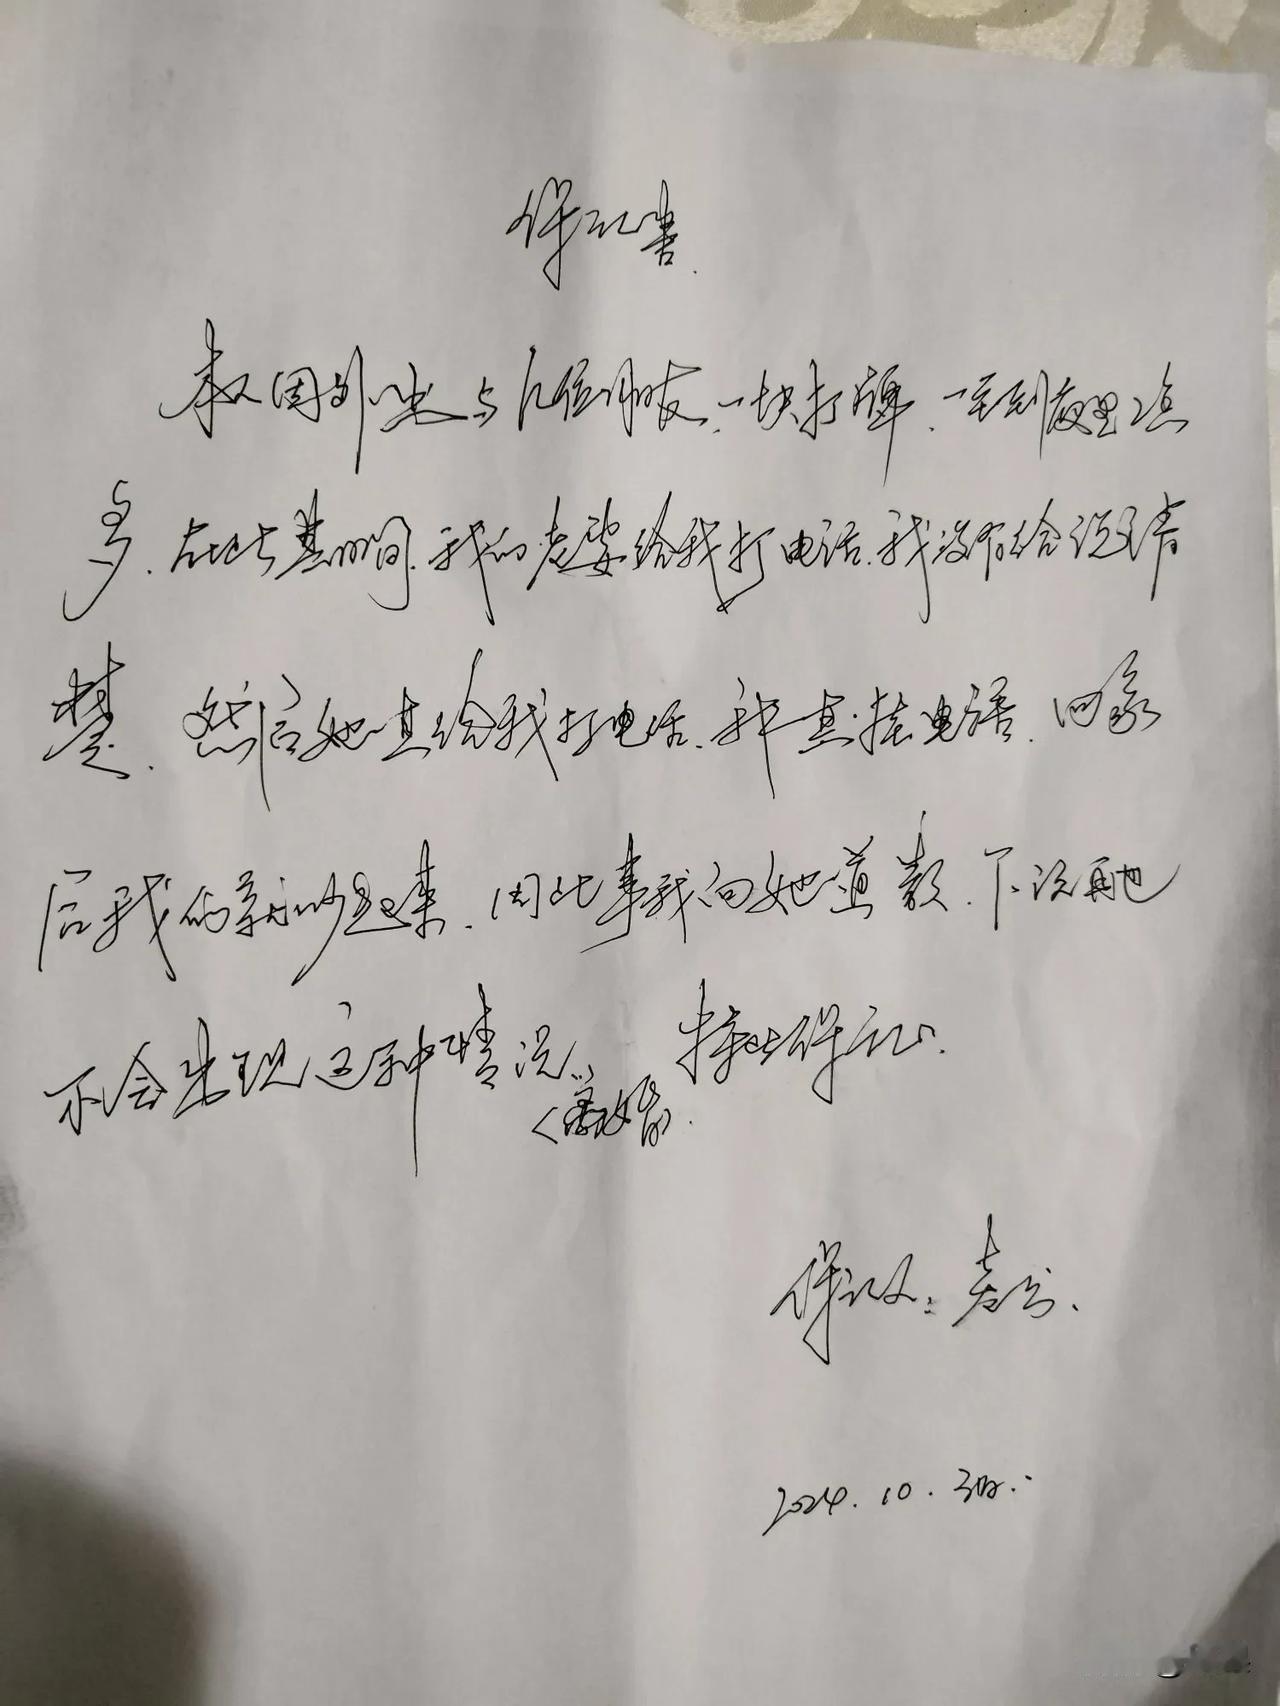 保证书
本人因外出与几位朋友一块打牌，一直到夜里2点
多，在此期间，我的老婆给我打电话，我没有给说清
楚，然后她一直给我打电话，我一直挂电话，回家
后我们就吵起来，因此事我向她道歉，下次再也
不会出现这种情况，特此保证。
（离婚）
保证人：老公
2024.10.3日